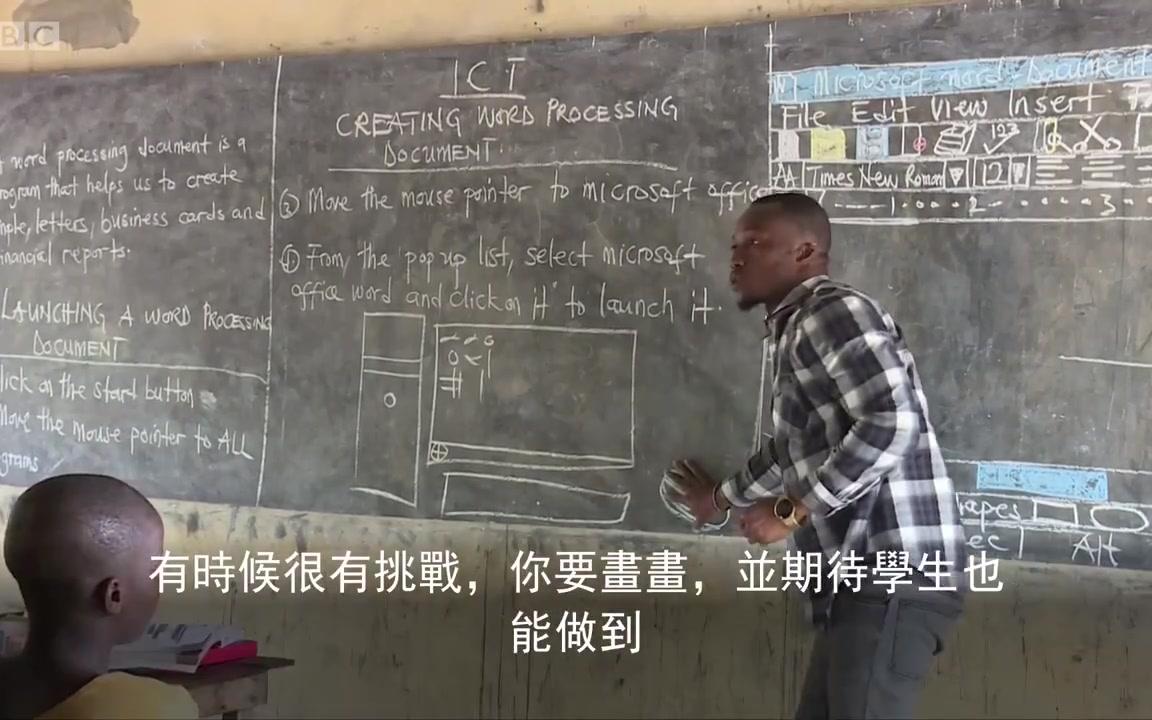 BBC
word processing document is a
program that helps us to create
letters, business cards and
financial reports.
LAUNCHING A WORD PROCESSING
DOCUMENT
click on the start button
Move the mouse pointer to ALL
grams
ICT
CREATING WORD PROCESSING
DOCUMENT.
③ Move the mouse pointer to microsoft office
④ From the pop up list, select microsoft
office word and click on it to launch it.
Microsoft Word Document
File Edit View Insert
123
AA Times New Roman 12
1 2 3
apes
Alt
有時候很有挑戰，你要畫畫，並期待學生也
能做到